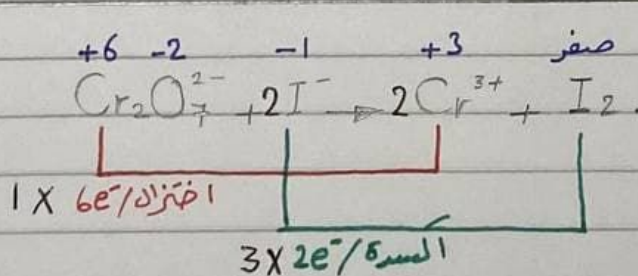 +6 -2 -1 +3 صفر
Cr₂O₇²⁻ + 2I⁻ → 2Cr³⁺ + I₂
1 X 6e⁻/اختزال
3 X 2e⁻/اكسدة